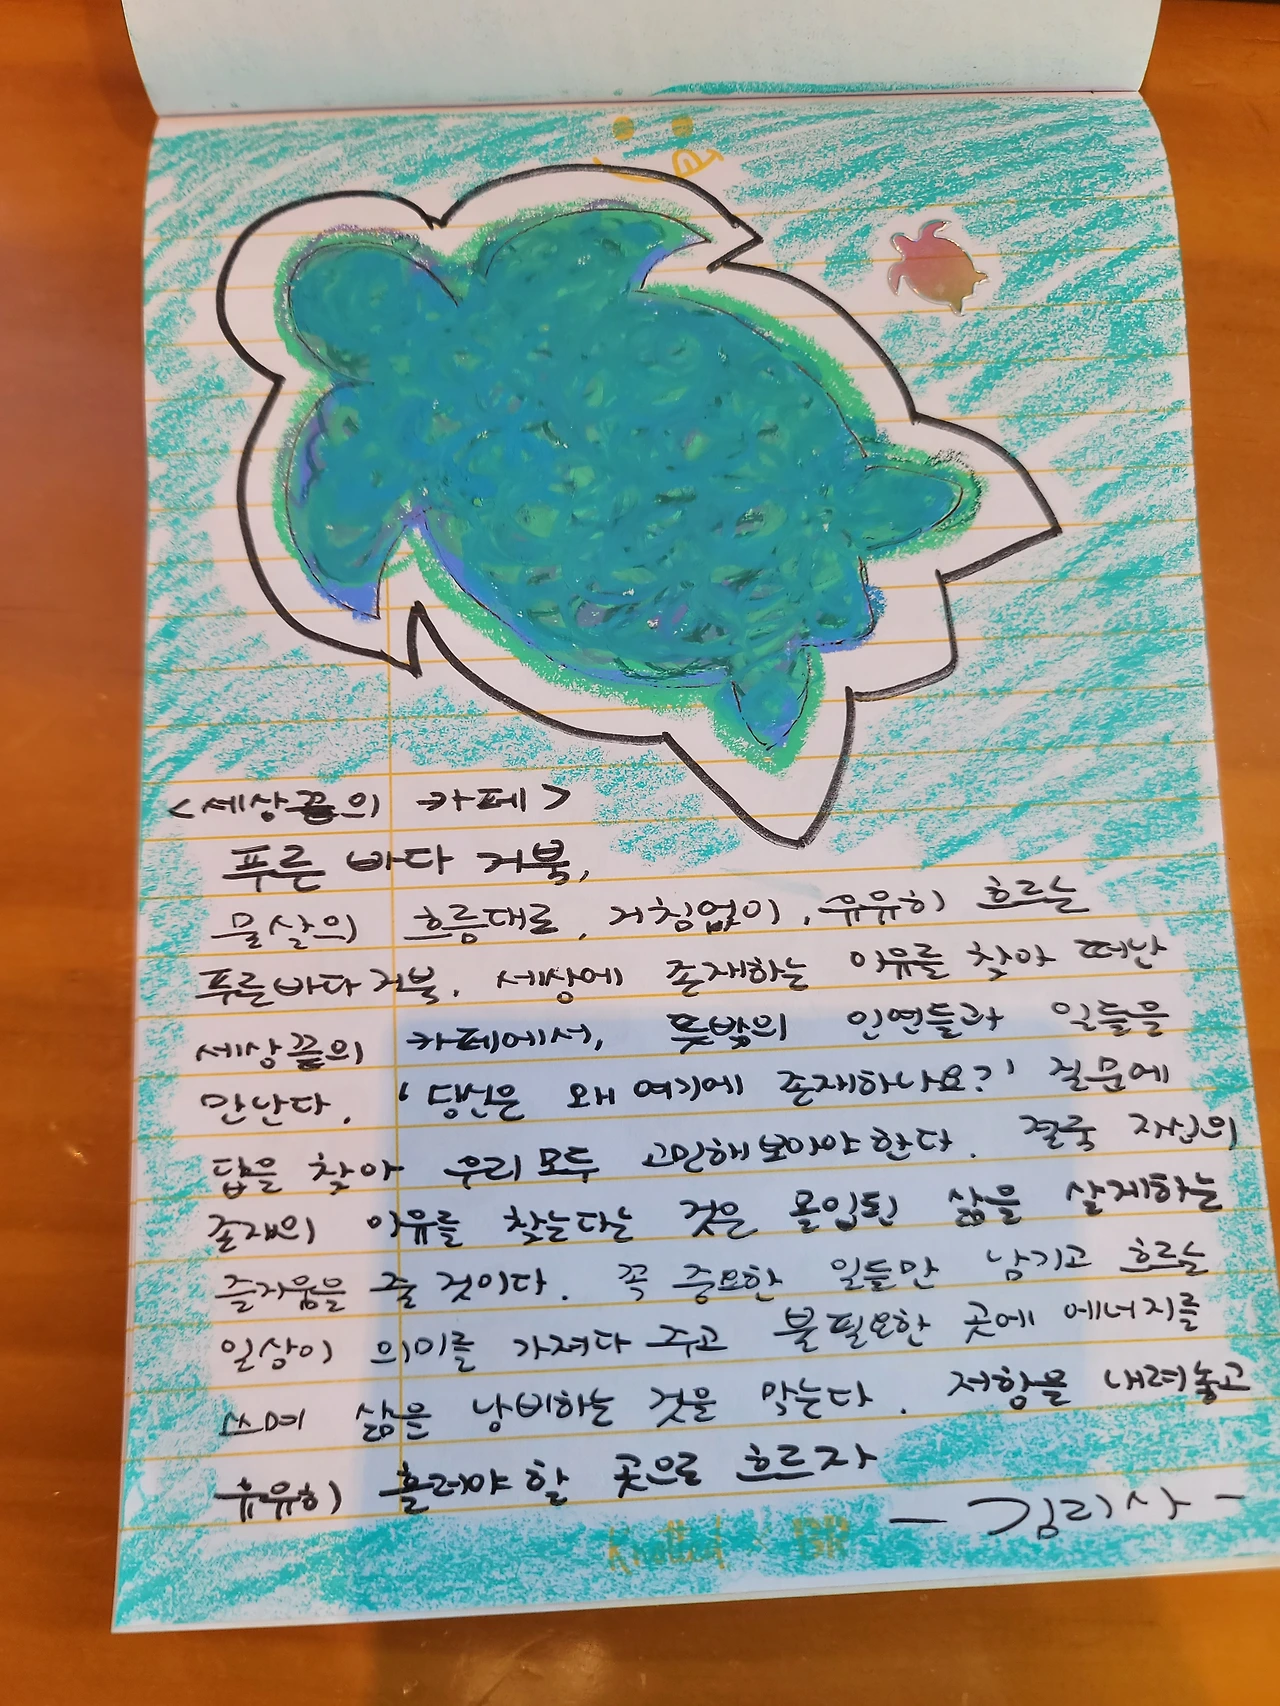 <세상끝의 카페>
푸른 바다 거북,
물살의 흐름대로, 거침없이, 유유히 흐르는
푸른바다거북. 세상에 존재하는 이유를 찾아 떠난
세상끝의 카페에서, 뜻밖의 인연들과 일들을
만난다. '당신은 왜 여기에 존재하나요?' 질문에
답을 찾아 우리모두 고민해보아야한다. 결국 자신의
존재의 이유를 찾는다는 것은 몰입된 삶을 살게하는
즐거움을 줄 것이다. 꼭 중요한 일들만 남기고 흐르는
일상이 의미를 가져다 주고 불필요한 곳에 에너지를
쓰며 삶을 낭비하는 것을 막는다. 저항을 내려놓고
유유히 흘러야할 곳으로 흐르자
- 김리사 -
Knotted × BR